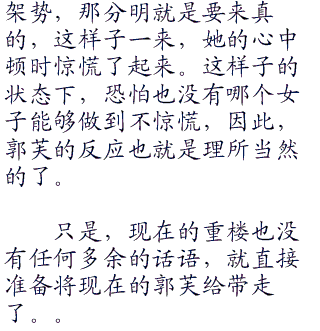 架势，那分明就是要来真
的，这样子一来，她的心中
顿时惊慌了起来。这样子的
状态下，恐怕也没有哪个女
子能够做到不惊慌，因此，
郭芙的反应也就是理所当然
的了。
只是，现在的重楼也没
有任何多余的话语，就直接
准备将现在的郭芙给带走
了。。